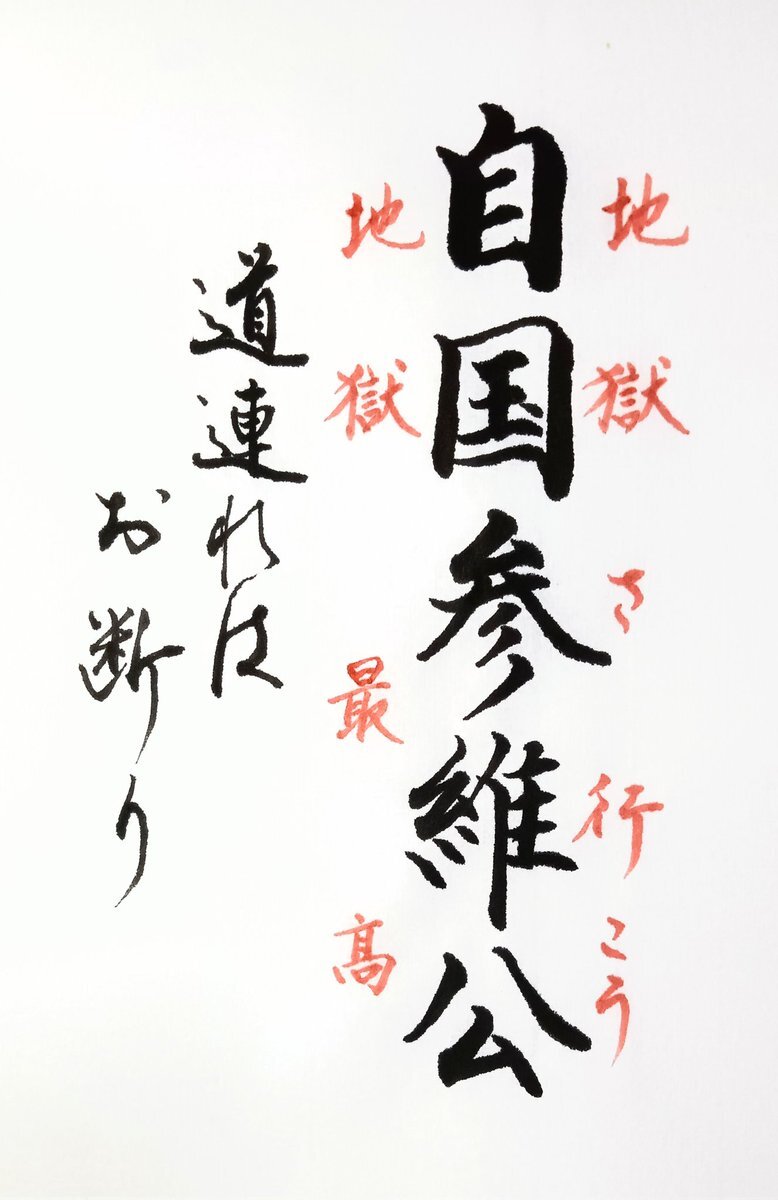 地獄さ行こう
自国参維公
地獄最高
道連れは
お断り